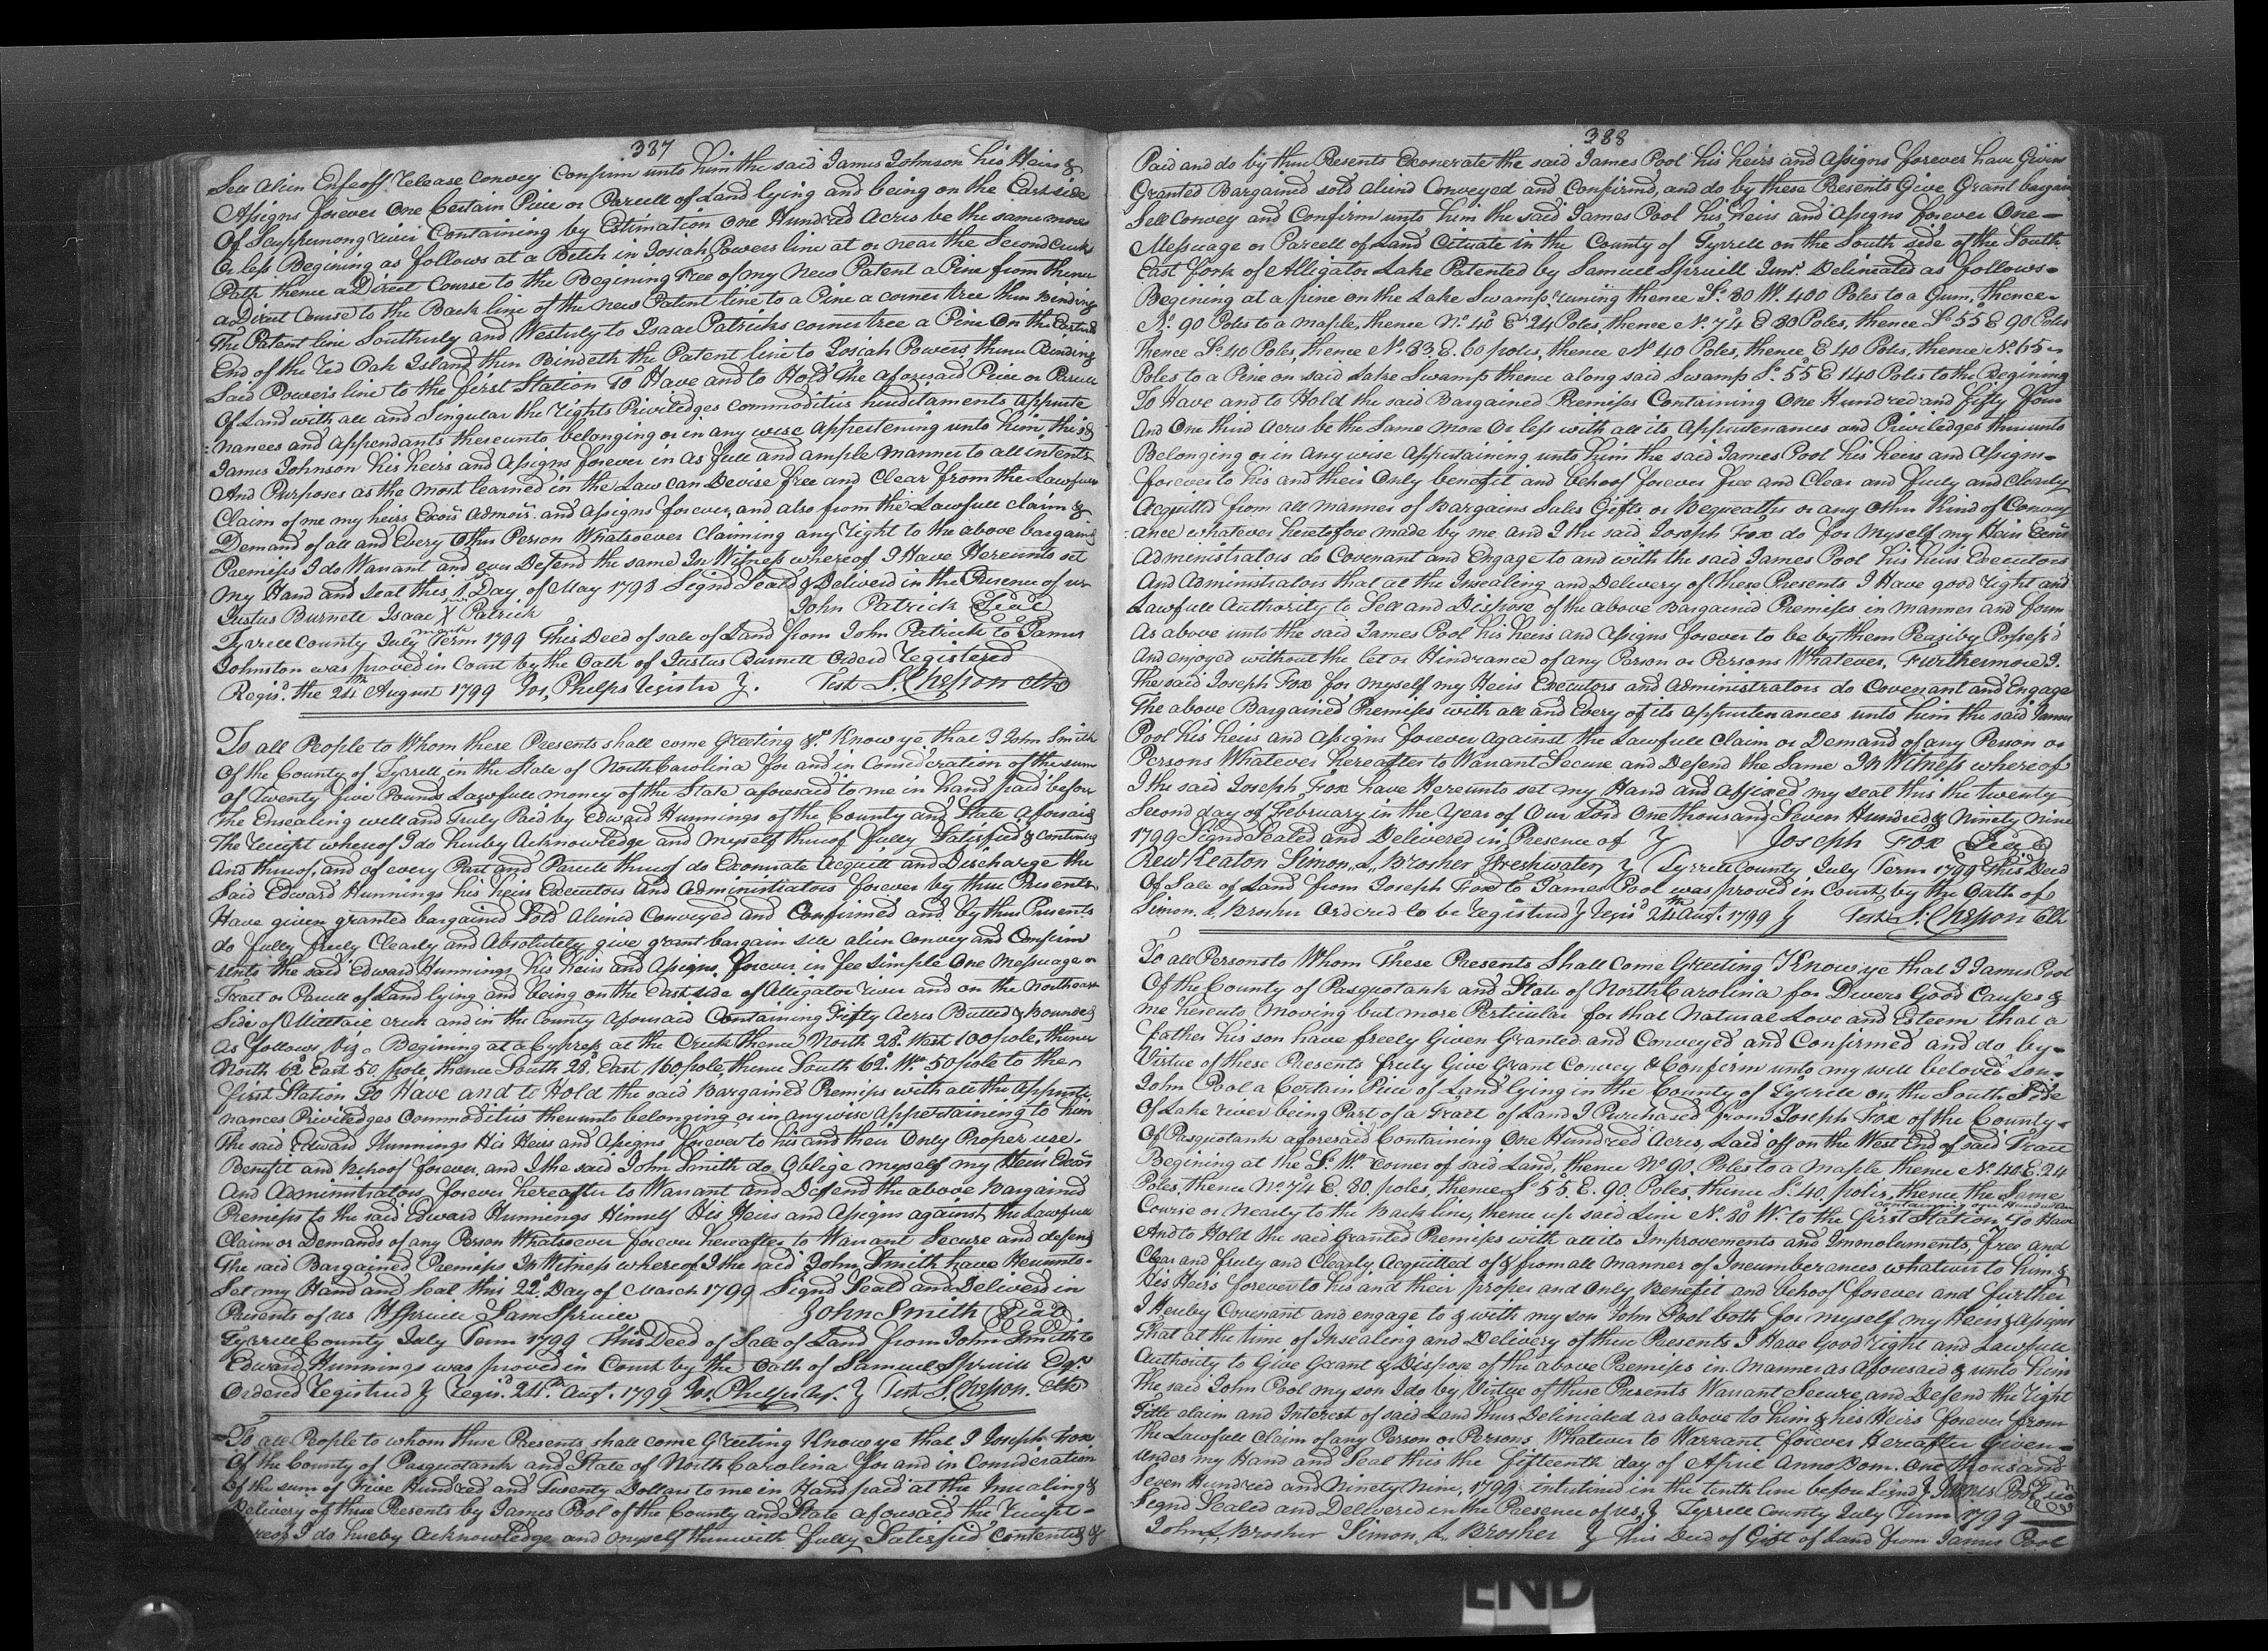 387
Sell Alien Enfeoff Release Convey Confirm unto him the said James Johnson his Heirs &
Assigns forever One Certain Piece or Parcell of Land lying and being on the East side
Of Scuppernong river Containing by Estimation One Hundred Acres be the same more
Or less Begining as follows at a Betch in Josiah Powers line at or near the Second Creek
Path thence a Direct Course to the Begining tree of my New Patent a Pine from thence
a Direct Course to the Back line of the new Patent line to a Pine a corner tree then Binding
The Patent line Southerly and Westerly to Isaac Patricks corner tree a Pine On the Eastend
End of the Red Oak Island then Bindeth the Patent line to Josiah Powers thence Binding
Said Powers line to the first Station To Have and to Hold The aforesaid Piece or Parcell
Of Land with all and Singular the rights Priviledges commodities heriditaments appurte
:nances and Appendants thereunto belonging or in any wise Appertening unto him the sd
James Johnson his heirs and Assigns forever in as full and ample Manner to all intents
And Purposes as the most learned in the Law can Devise free and Clear from the Lawfull
Claim of me my heirs Exors Admors. and Assigns forever, and also from the Lawfull claim &
Demand of all and Every Other Person Whatsoever Claiming any right to the above bargaind
Premises I do Warrant and ever Defend the same In Witness whereof I Have Hereunto set
My Hand and Seal this 1 Day of May 1798 Signd Seald & Deliverd in the Presence of us
Justus Burnett Isaac X Patrick John Patrick Seal
mark
Tyrrell County July Term 1799 This Deed of sale of Land from John Patrick to James
Johnston was proved in Court by the Oath of Justus Burnett Orderd Registered
Regisd. the 24th August 1799 Jos, Phelps register Test S. Chesson Clk
To all People to Whom these Presents shall come Greeting &c. Know ye, that I John Smith
Of the County of Tyrrell in the State of North Carolina for and in Consideration of the sum
of Twenty five Pounds Lawfull money of the State aforesaid to me in hand paid before
The Ensealing well and Truly Paid by Edward Hunnings of the County and State aforesaid
The receipt whereof I do hereby Acknowledge and myself thereof fully Satisfied & Contented
And thereof, and of every Part and Parcell thereof do Exonerate Acquitt and Discharge the
Said Edward Hunnings his heirs Executors and Administrators forever by these Presents
Have given granted bargained Sold aliened Conveyed and Confirmed and, by these Presents
do fully freely Clearly and Absolutely give grant bargain sell alien convey and Confirm
unto the said Edward Hunnings his heirs and Assigns forever in fee simple One Messuage or
Tract or Parcell of Land lying and being on the East side of Alligator river and on the Northeast
Side of Milltaie creek and in the County Aforesaid Containing Fifty Acres Butted & Bounded
As follows Viz. Begining at a Cypress at the Creek thence North 28d. West 160 pole, thence
North 62d East 50, pole, thence South 28d. East 160 pole, thence South 62d. Wt. 50 pole to the
first Station To Have and to Hold the said Bargained Premises with all the Appurte
nances Priviledges Commodities thereunto belonging or in anywise Appertaining to him
The said Edward Hunnings His Heirs and Assigns forever to his and their Only Proper use.
Benefit and behoof forever, and I the said John Smith do Oblige myself my Heirs Exors
And Administrators forever hereafter to Warrant and Defend the above Bargained
Premises to the said Edward Hunnings Himself His Heirs and Assigns against the Lawfull
Claim or Demands of any Person Whatsoever forever hereafter to Warrant Secure and defend
The said Bargained Premises In Witness whereof I the said John Smith have Hereunto
Set my Hand and Seal this 22d. Day of March 1799 Signd Seald and Deliverd in
Presents of us H Spruill Sam Spruill John Smith Seal
Tyrrell County July Term 1799 This Deed of Sale of Land from John Smith to
Edward Hunnings was proved in Court by the Oath of Samuel Spruill Esqr.
Ordered registred Regisd. 24th. Augt. 1799 Jos. Phelps Test S. Chesson. Clk
To all People to whom these Presents shall come Greeting Know ye that I Joseph Fox
Of the County of Pasquotank and State of North Carolina for and in Consideration
Of the sum of Five Hundred and Twenty Dollars to me in Hand paid at the Insealing &
Delivery of these Presents by James Pool of the County and State aforesaid the receipt
I do hereby Acknowledge and myself therewith fully Satisfied Contented &
388
Paid and do by these Presents Exonerate the said James Pool his heirs and Assigns forever have Given
Granted Bargained sold aliend Conveyed and Confirmd, and do by these Presents Give Grant bargain
Sell Convey and Confirm unto him the said James Pool his heirs and Assigns forever One
Messuage or Parcell of Land Cituate in the County of Tyrrell on the South side of the South
East fork of Alligator Lake Patented by Samuel Spruill Junr. Delineated as follows
Begining at a pine on the Lake Swamp, runing thence So. 30 W. 400 Poles to a Gum, thence
No. 90 Poles to a maple, thence No. 40 Et. 24 Poles, thence No. 74 E 80 Poles, thence So 55 E 90 Poles
Thence So. 40 Poles, thence No. 83. E. 60 poles, thence No 40 Poles, thence, E 40 Poles, thence No. 65
Poles to a Pine on said Lake Swamp thence along said Swamp So. 55 E 140 Poles to the Begining
To Have and to Hold the said Bargained Premises Containing One Hundred and fifty four
And One third Acres be the Same More Or less with all its Appurtenances and Priviledges thereunto
Belonging or in any wise Appertaining unto him the said James Pool his heirs and Assigns
forever to his and their Only benefit and behoof forever free and Clear and freely and clearly
Acquitted from all manner of Bargains Sales Gifts or Bequeaths or any other Kind of Convey
:ance whatever heretofore made by me and I the said Joseph Fox do for Myself my Heirs Exors
Administrators do Covenant and Engage to and with the said James Pool his heirs Executors
And Administrators that at the Insealing and Delivery of these Presents I Have good right and
Lawfull Authority to Sell and Dispose of the above Bargained Premises in manner and form
As above unto the said James Pool his heirs and Assigns forever to be by them Peasiby Possess'd
And enjoyed without the let or Hindrance of any Person or Persons Whatever, Furthermore I.
The said Joseph Fox for myself my Heirs Executors and Administrators do Covenant and Engage
The above Bargained Premises with all and Every of its appurtenances unto him the said James
Pool his heirs and Assigns forever Against the Lawfull Claim or Demand of any Person or
Persons Whatever hereafter to Warrant Secure and Defend the Same In Witness whereof
I the said Joseph Fox have Hereunto set my Hand and affixed my seal this the twenty
Second day of February in the Year of Our Lord One thousand Seven Hundred & Ninety Nine
1799 Signd Sealed and Delivered in Presence of Joseph Fox Seal
Reuv. Keaton Simon L Brosher Freshwater Tyrrell County July Term 1799 This Deed
Of Sale of Land from Joseph Fox to James Pool was proved in Court by the Oath of
Simon. L Brosher Ordered to be registred Regisd 24th Augt. 1799 Test S. Chesson Clk
To all Persons to Whom These Presents Shall Come Greeting Know ye that I James Pool
Of the County of Pasquotank and State of North Carolina for Divers Good Causes &
me hereto Moving but more Perticular for that Natural Love and Esteem that a
father his son have freely Given Granted and Conveyed and Confirmed and do by
Virtue of these Presents freely Give Grant Convey & Confirm unto my well beloved Son
John Pool a Certain Piece of Land lying in the County of Tyrrell on the South Side
Of Lake river being Part of a Tract of Land I Purchased from Joseph Fox of the County
Of Pasquotank aforesaid Containing One Hundred Acres, Laid off on the West End of said Tract
Begining at the So. Wt. corner of said Land, thence No 90. Poles to a Maple thence No. 40 E. 24
Poles, thence No. 74 E. 80. poles, thence So 55. E. 90. Poles. thence So. 40. poles, thence the Same
Containing one Hundred Acres
Course or Nearly to the Back line, thence up said Line N. 30 W. to the first Station, To Have
And to Hold the said Granted Premises with all its Improvements and Immoluments, free and
Clear and freely and Clearly, Acquitted of & from all manner of Incumberances whatever to him &
His Heirs forever to his and their proper and Only Benefit and behoof forever and further
I Hereby Covenant and engage to & with my son John Pool both for myself my Heirs & Assigns
That at the time of Insealing and Delivery of these Presents I Have Good right and Lawfull
Authority to Give Grant & Dispose of the above Premises in Manner as Aforesaid & unto him
The said John Pool my son I do by Virtue of these Presents Warrant Secure and Defend the right
Title claim and Interest of said Land thus Deliniated as above to him & his Heirs forever from
The Lawfull Claim of any Person or Persons Whatever to Warrant forever Hereafter Given
Under my Hand and Seal this the fifteenth day of April Anno Dom. One thousand
Seven Hundred and Ninety Nine, 1799 interlined in the tenth line before Signd James Pool Seal
Signd Sealed and Delivered in the Presence of us, Tyrrell County July Term 1799
John L Brosher Simon, L Brosher This Deed of Gift of Land from James Pool
END